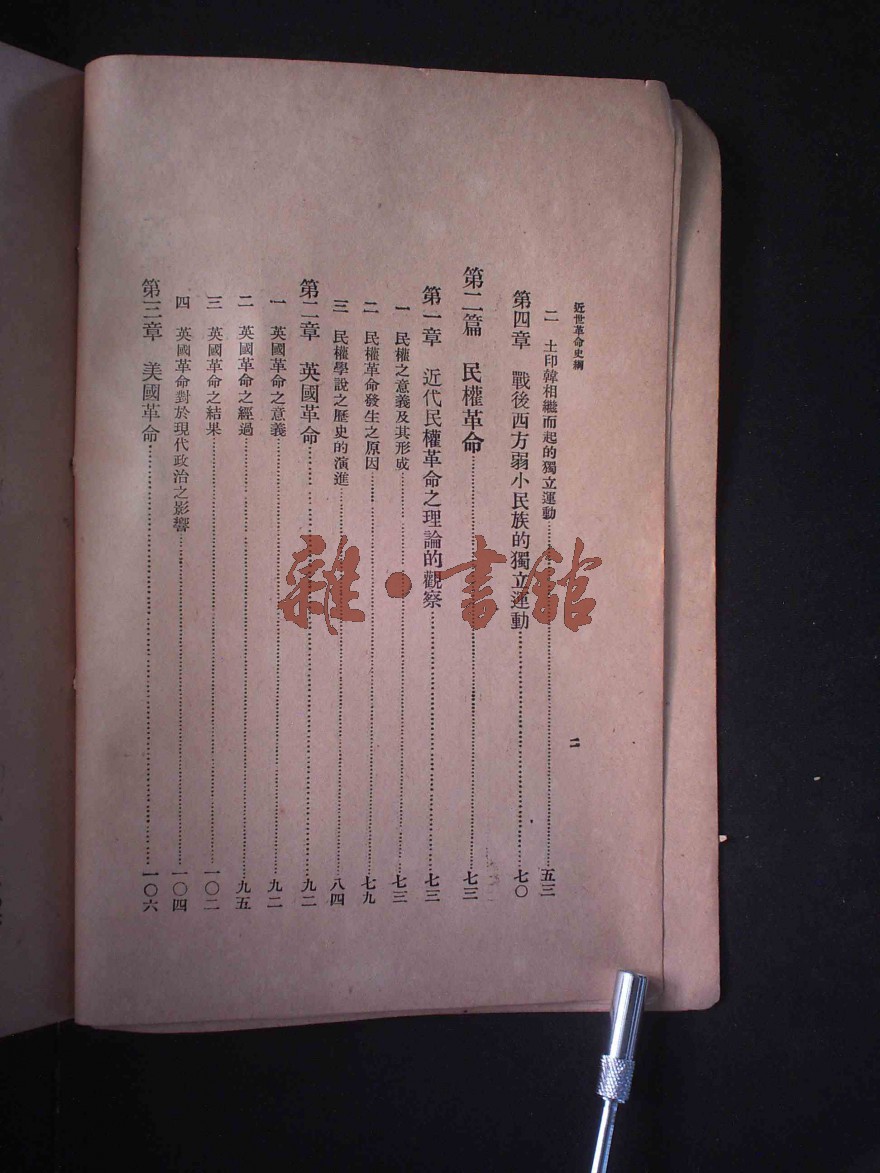 近世革命史綱
二　土印韓相繼而起的獨立運動……五三
第四章　戰後西方弱小民族的獨立運動……七〇
第二篇　民權革命……七三
第一章　近代民權革命之理論的觀察……七三
一　民權之意義及其形成……七三
二　民權革命發生之原因……七九
三　民權學說之歷史的演進……八四
第二章　英國革命……九二
一　英國革命之意義……九二
二　英國革命之經過……九五
三　英國革命之結果……一〇二
四　英國革命對於現代政治之影響……一〇四
第三章　美國革命……一〇六
二
雜·書館